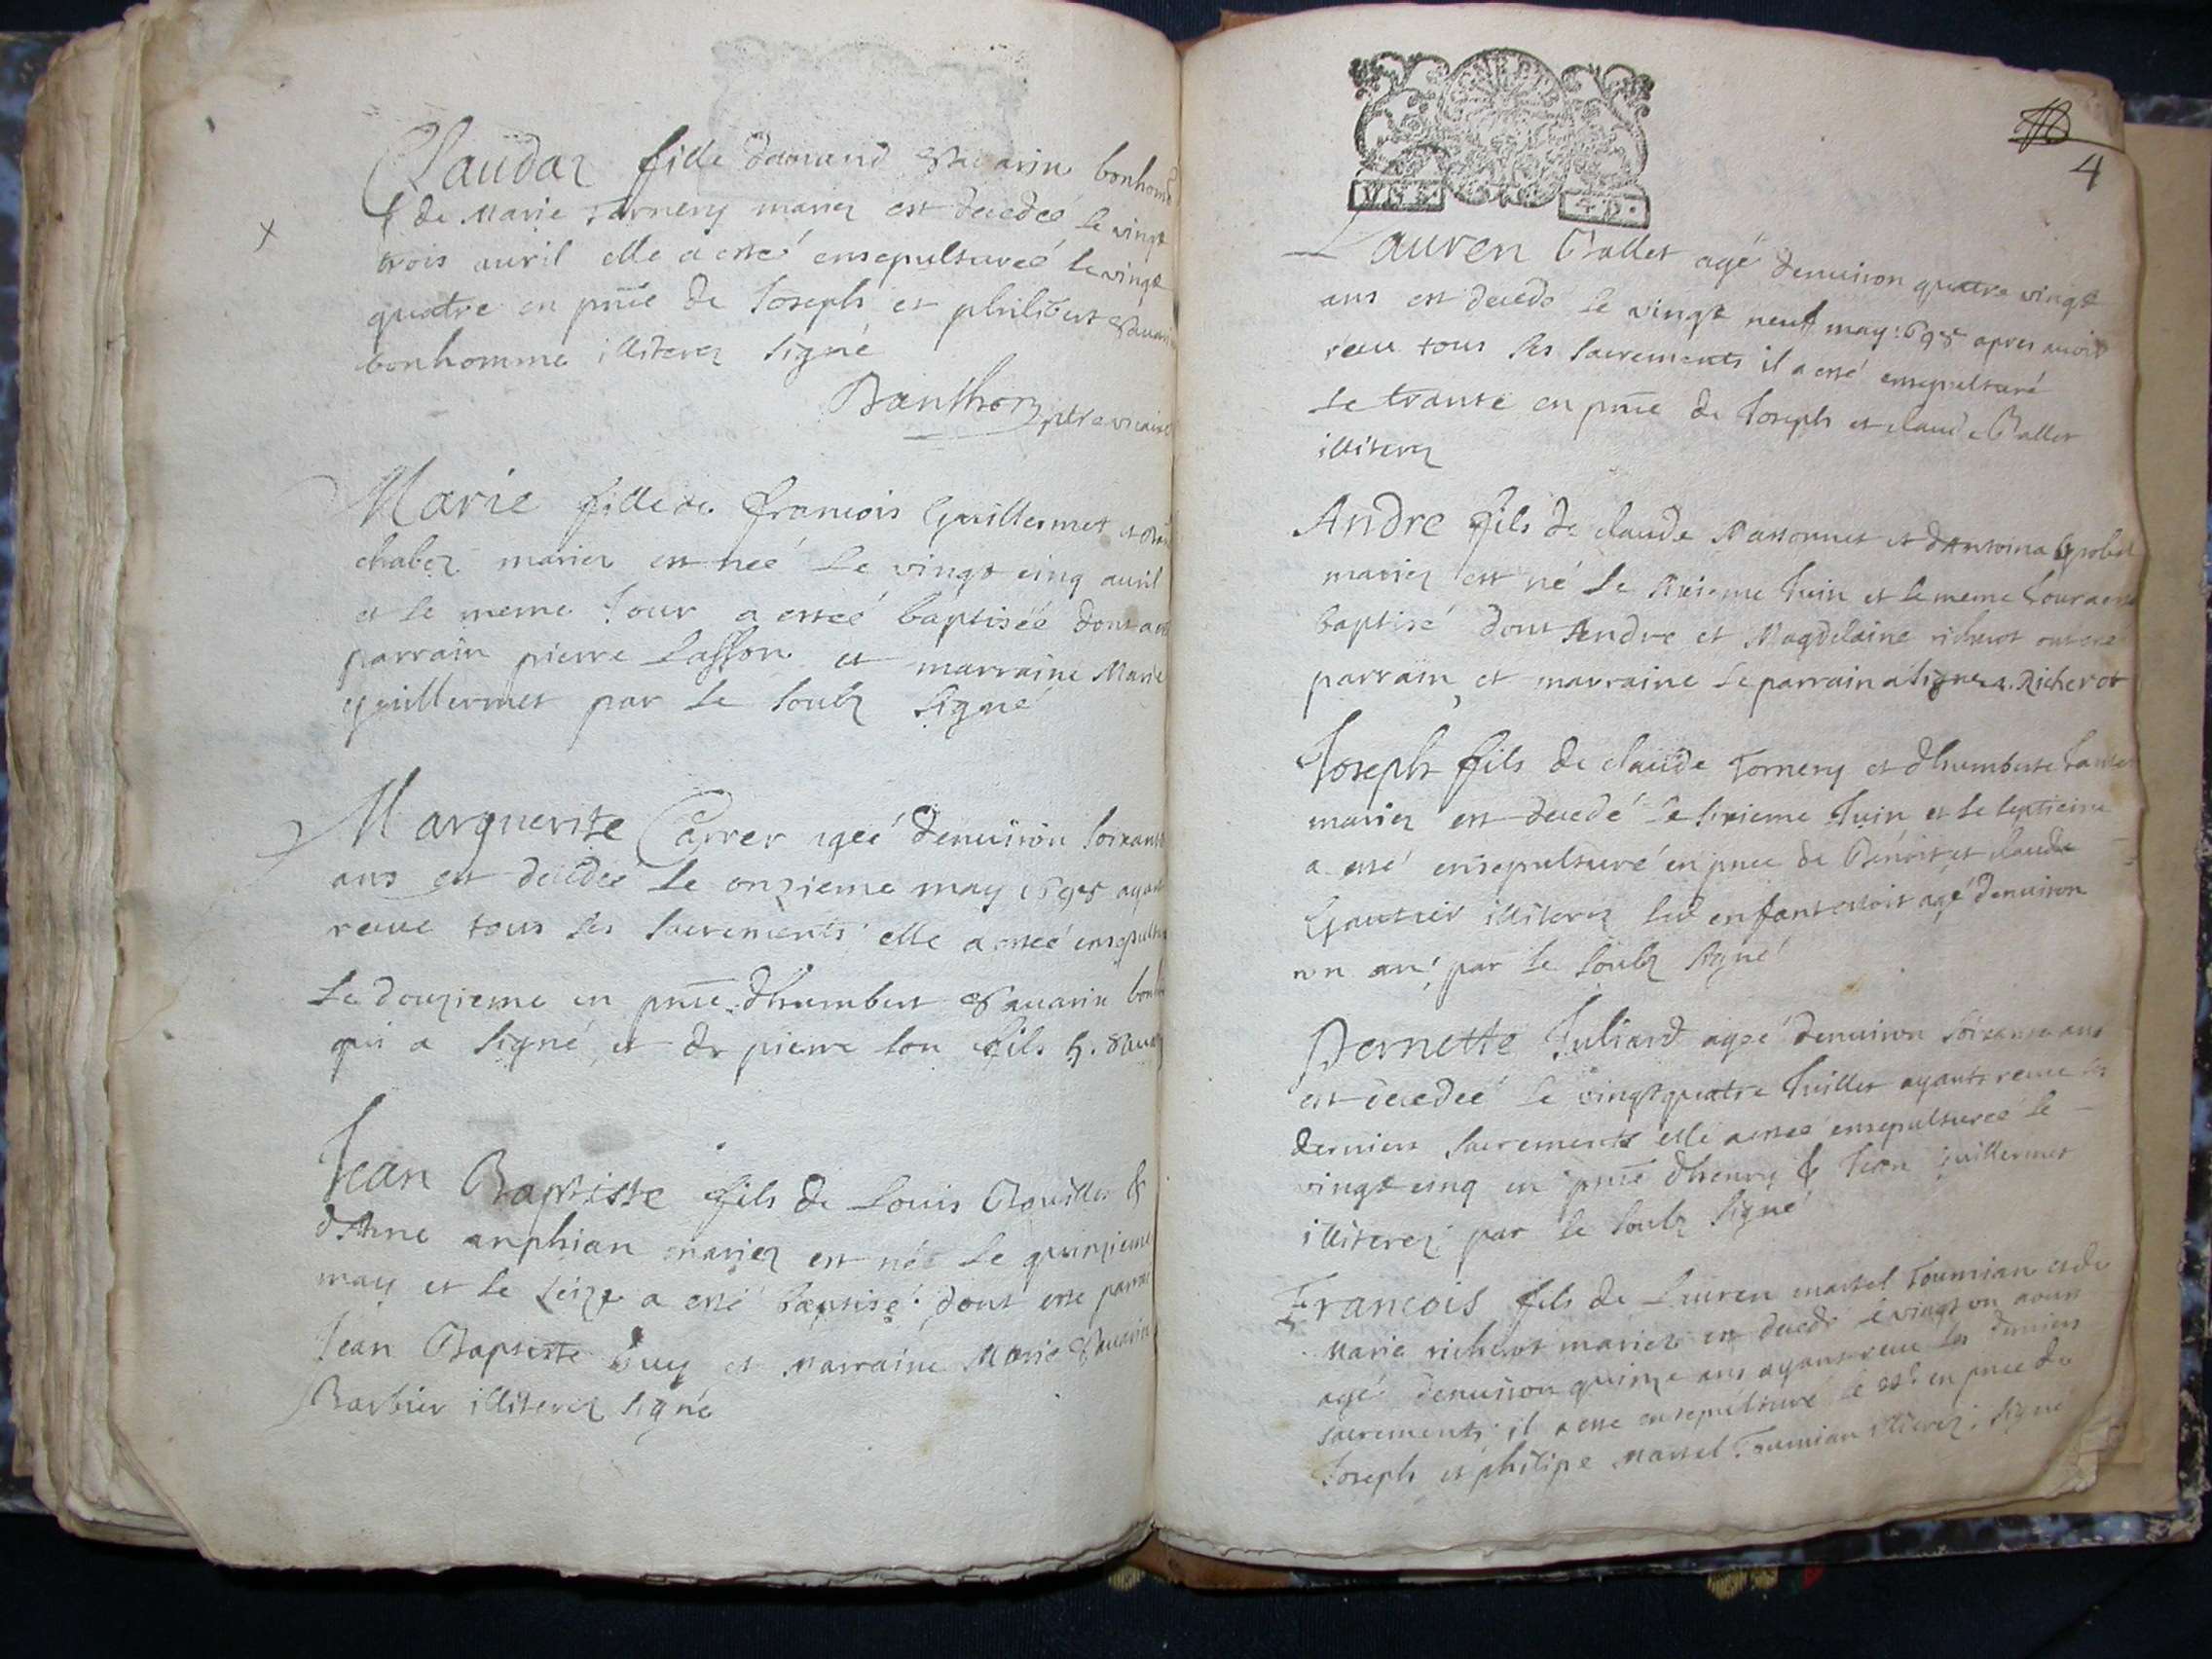 Claudaz fille damand Sauarin bonhome
& de Marie Tornery mariez est decedeé le vingt
trois auril elle a esteé ensepultureé le vingt
quatre en pnce de Joseph et philibert Sauarin
bonhomme illiterez signé
Banthon ptre vicaire
Marie fille de francois Guillermet et
chabez mariez est neé le vingt cinq auril
et le meme Jour a esteé baptiséé dont a esté
parrain pierre Lasson et marraine Marie
guillermet par le soubz signé
Marguerite Carrer ageé denuiron soixante
ans est decedeé le onzieme may 1698 ayant
receue tous les sacrements elle a esteé ensepulture
le douzieme en pnce dhumbert Sauarin bonho
qui a signé et de pierre son fils h. Sauarin
Jean Baptiste fils de Louis Rouiller &
dAnne anphian mariez est né le quinzieme
may et le seize a esté baptisé dont este parrai
Jean Baptiste Guy et Marraine Marie Sauarin
Barbier illiterez signé
4
Lauren Ballet agé denuiron quatre vingt
ans est decedé le vingt neuf may 1698 apres auoir
receu tous les sacrements il a esté ensepulturé
le trante en pnce de Joseph et claude Ballet
illiterez
Andre fils de claude Massonnet et dAntoina Grobet
mariez est né le sixieme Juin et le meme Jour a esté
baptisé dont Andre et Magdelaine richerot ont esté
parrain et marraine le parrain a signé a. Richerot
Joseph fils de claude Tornery et dhumberte
mariez est decedé le sixieme Juin et le septieme
a esté ensepulturé en pnce de Benoit et claude
Gautier illiterez led enfant estoit agé denuiron
un an, par le soubz signé
Pernette Juliard ageé denuiron soixante ans
est decedeé le vingt quatre Juillet ayant receue les
derniers sacrements elle a esteé ensepultureé le
vingt cinq en pnce dhenry & Jean guillermet
illiterez par le soubz signé
Francois fils de Lauren martel Toumian et de
Marie richerot mariez est decedé le vingt un aoust
agé denuiron quinze ans ayant receu les derniers
sacrements il a esté ensepulturé le 22e en pnce de
Joseph et philipe martel Toumian illiterez signé